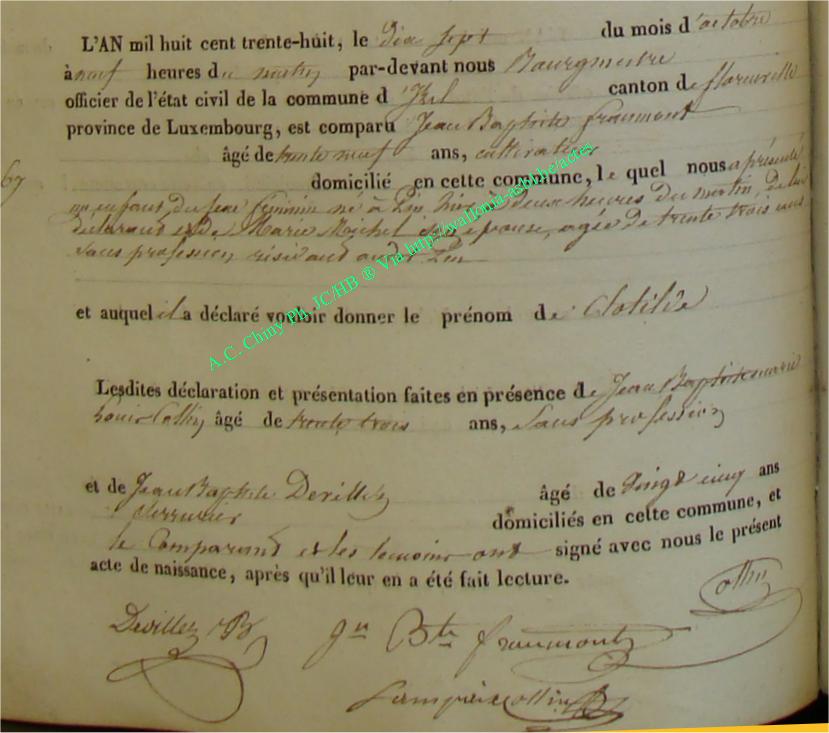 L'AN mil huit cent trente-huit, le dix sept du mois d'octobre
à neuf heures du matin par-devant nous Bourgmestre
officier de l'état civil de la commune d'Izel canton de florenville
province de Luxembourg, est comparu Jean Baptiste fraumont
âgé de trente neuf ans, cultivateur
67
domicilié en cette commune, le quel nous a présenté
un enfant du sexe féminin né à Pin hier à deux heures du matin, de lui
déclarant et de Marie Michel son épouse, agée de trente trois ans
sans profession résidant audit Pin
et auquel il a déclaré vouloir donner le prénom de Clotilde
Lesdites déclaration et présentation faites en présence de Jean Baptiste marie
louis Collin âgé de trente trois ans, sans profession
et de Jean Baptiste Devillez âgé de vingt cinq ans
serrurier domiciliés en cette commune, et
le Comparant et les temoins ont signé avec nous le présent
acte de naissance, après qu'il leur en a été fait lecture.
Collin
Devillez JB Jn Bte fraumont
A.C. Chiny Ph. JC/HB ® Via http://wallonia-asbl.be/actes